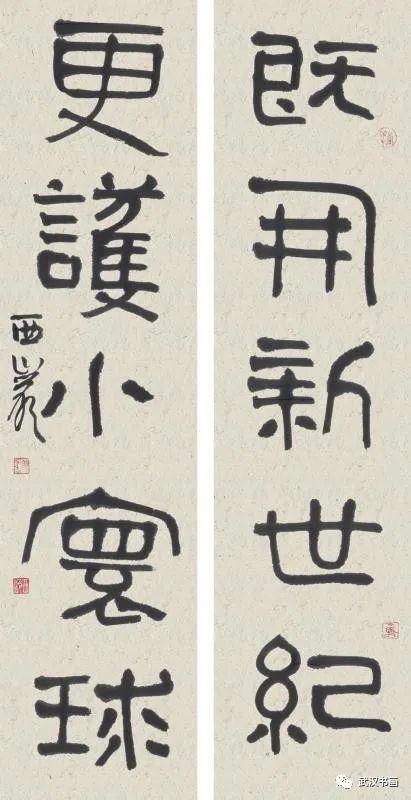 既開新世紀
更護小寰球
西巖
武汉书画